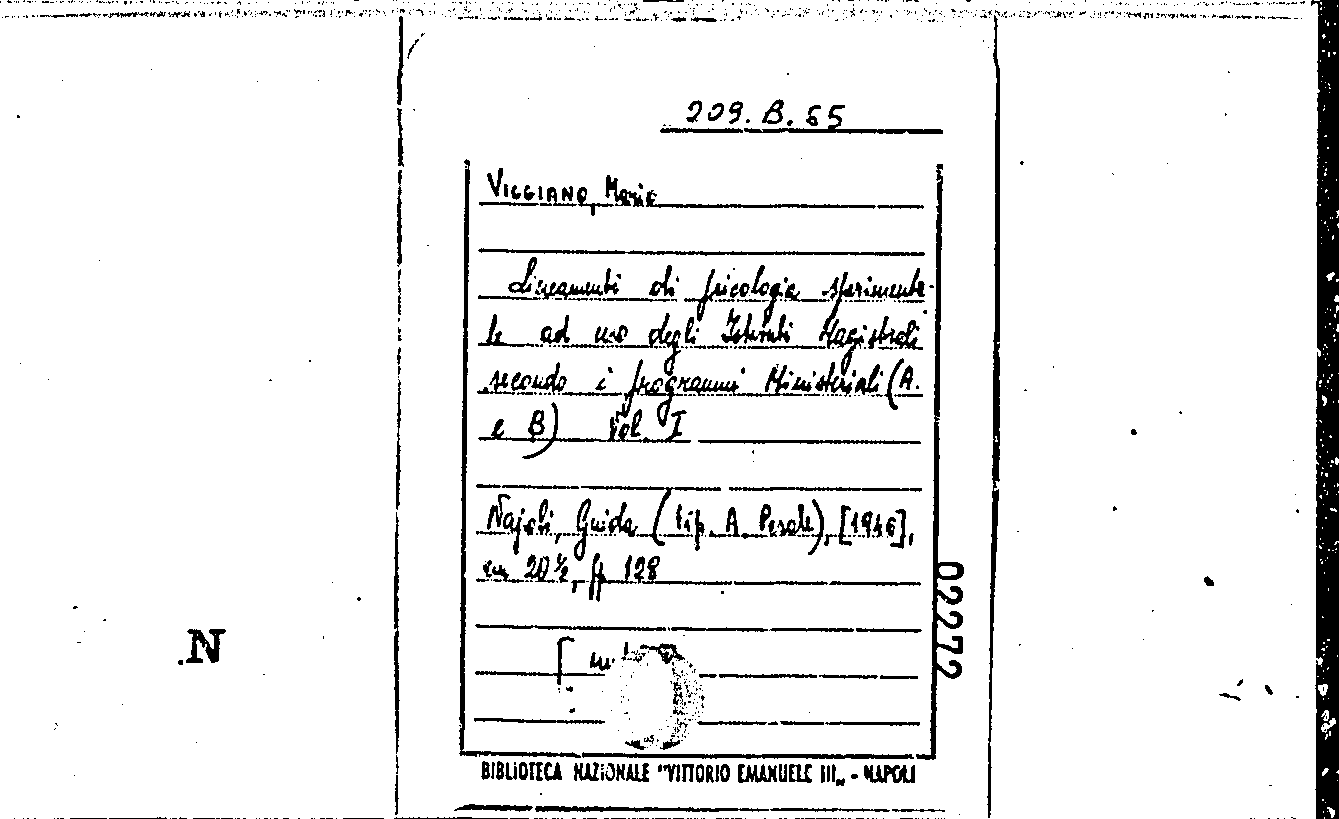 209.B.65
VIGGIANO, Maria
Lineamenti di psicologia sperimenta-
le ad uso degli Istituti Magistrali
secondo i programmi Ministeriali (A.
e B) Vol. I
Napoli, Guida (tip. A. Pesole), [1946],
cm 20 ½, pp 128
02272
N
BIBLIOTECA NAZIONALE "VITTORIO EMANUELE III„ - NAPOLI